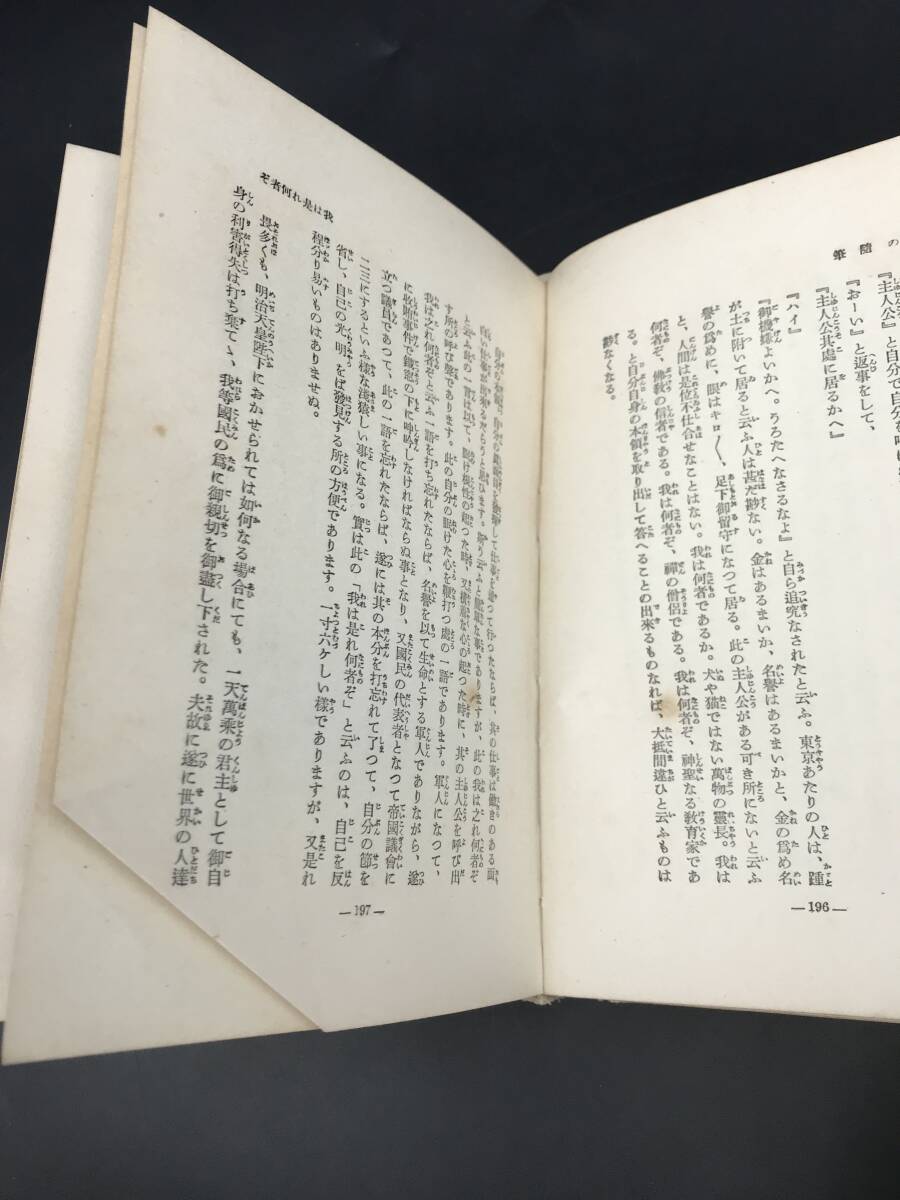 の隨筆
『主人公』と自分で自分を呼び
『おーい』と返事をして、
『主人公共處に居るかへ』
『ハイ』
『御機嫌よいかへ。うろたへなさるなよ』と自ら追究なされたと云ふ。東京あたりの人は、踵
が土に附いて居ると云ふ人は甚だ尠ない。金はあるまいか、名譽はあるまいかと、金の爲め名
譽の爲めに、眼はキロ〱、足下御留守になつて居る。此の主人公がある可き所にないと云ふ
と、人間は是位不仕合せなことはない。我は何者であるか。犬や猫ではない萬物の靈長。我は
何者ぞ、佛教の信者である。我は何者ぞ、禪の僧侶である。我は何者ぞ、神聖なる教育家であ
る。と自分自身の本領を取り出して答へることの出來るものなれば、大抵間違ひと云ふものは
尠なくなる。
—196—
我は是れ何者ぞ
して仕事を使つて行つたならば、其の仕事は働きのある面
白い仕事が出來るだらうと思ひます。斯う云ふと簡單な事でありますが、此の我は之れ何者ぞ
と云ふ此の一語は以て、眠け根性の起つた時、又横着な心の起つた時に、其の主人公を呼び出
す所の呼び聲であります。此の自分の眠けた心を鞭打つ處の一語であります。軍人になつて、
我は之れ何者ぞと云ふ一語を打ち忘れたならば、名譽を以て生命とする軍人でありながら、遂
に收賄事件で鐵窓の下に呻吟しなければならぬ事となり、又國民の代表者となつて帝國議會に
立つ議員であつて、此の一語を忘れたならば、遂には其の本分を打忘れて了つて、自分の節を
二三にするといふ樣な淺猿しい事になる。實は此の「我は是れ何者ぞ」と云ふのは、自己を反
省し、自己の光明をば發見する所の方便であります。一寸六ケしい樣でありますが、又是れ
程分り易いものはありませぬ。
畏多くも、明治天皇陛下におかせられては如何なる場合にても、一天萬乘の君主として御自
身の利害得失は打ち棄てゝ、我等國民の爲に御親切を御盡し下された。夫故に遂に世界の人達
—197—